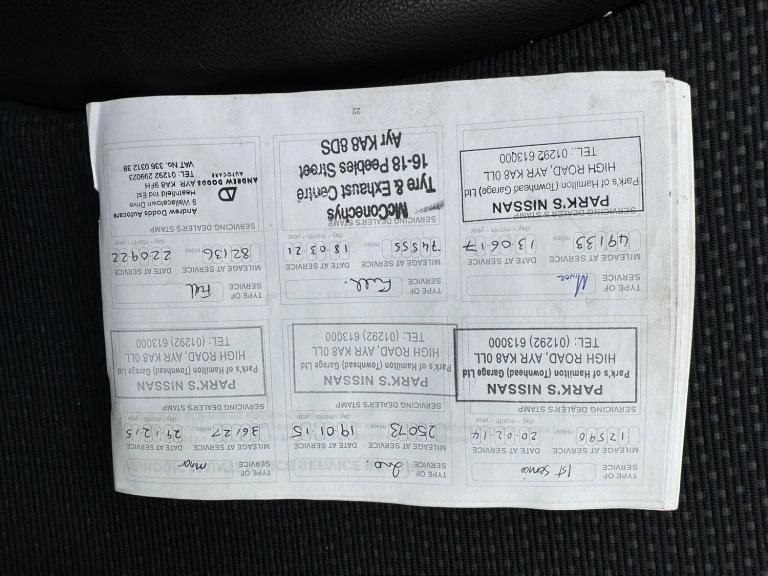 TYPE OF
SERVICE
1st Service
MILEAGE AT SERVICE
DATE AT SERVICE
12590
miles
20.02.14
day - month - year
SERVICING DEALER'S STAMP
PARK'S NISSAN
Park's of Hamilton (Townhead) Garage Ltd
HIGH ROAD, AYR KA8 0LL
TEL: (01292) 613000
TYPE OF
SERVICE
2nd.
MILEAGE AT SERVICE
DATE AT SERVICE
25073
miles
19.01.15
day - month - year
SERVICING DEALER'S STAMP
PARK'S NISSAN
Park's of Hamilton (Townhead) Garage Ltd
HIGH ROAD, AYR KA8 0LL
TEL: (01292) 613000
TYPE OF
SERVICE
minor
MILEAGE AT SERVICE
DATE AT SERVICE
36127
miles
29.12.15
day - month - year
SERVICING DEALER'S STAMP
PARK'S NISSAN
Park's of Hamilton (Townhead) Garage Ltd
HIGH ROAD, AYR KA8 0LL
TEL: (01292) 613000
TYPE OF
SERVICE
MILEAGE AT SERVICE
DATE AT SERVICE
49133
miles
13.06.17
day - month - year
SERVICING DEALER'S STAMP
PARK'S NISSAN
Park's of Hamilton (Townhead Garage) Ltd
HIGH ROAD, AYR KA8 0LL
TEL: 01292 613000
TYPE OF
SERVICE
Full.
MILEAGE AT SERVICE
DATE AT SERVICE
74555
miles
18.03.21
day - month - year
SERVICING DEALER'S STAMP
McConechys
Tyre & Exhaust Centre
16-18 Peebles Street
Ayr KA8 8DS
TYPE OF
SERVICE
Full
MILEAGE AT SERVICE
DATE AT SERVICE
82136
miles
22.09.22
day - month - year
SERVICING DEALER'S STAMP
Andrew Dodds Autocare
9 Wallacetown Drive
Heathfield Ind Est
AYR KA8 9FH
TEL: 01292 299023
VAT No. 336 0312 39
ANDREW DODDS
AUTOCARE
22